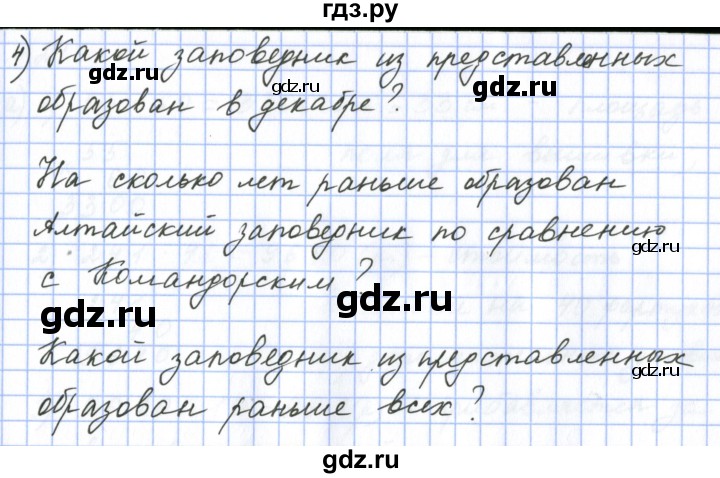 гдз.ру
4) Какой заповедник из представленных
образован в декабре?
На сколько лет раньше образован
Алтайский заповедник по сравнению
с Командорским?
Какой заповедник из представленных
образован раньше всех?
gdz.ru
gdz.ru
gdz.ru
gdz.ru
gdz.ru
gdz.ru
gdz.ru
gdz.ru